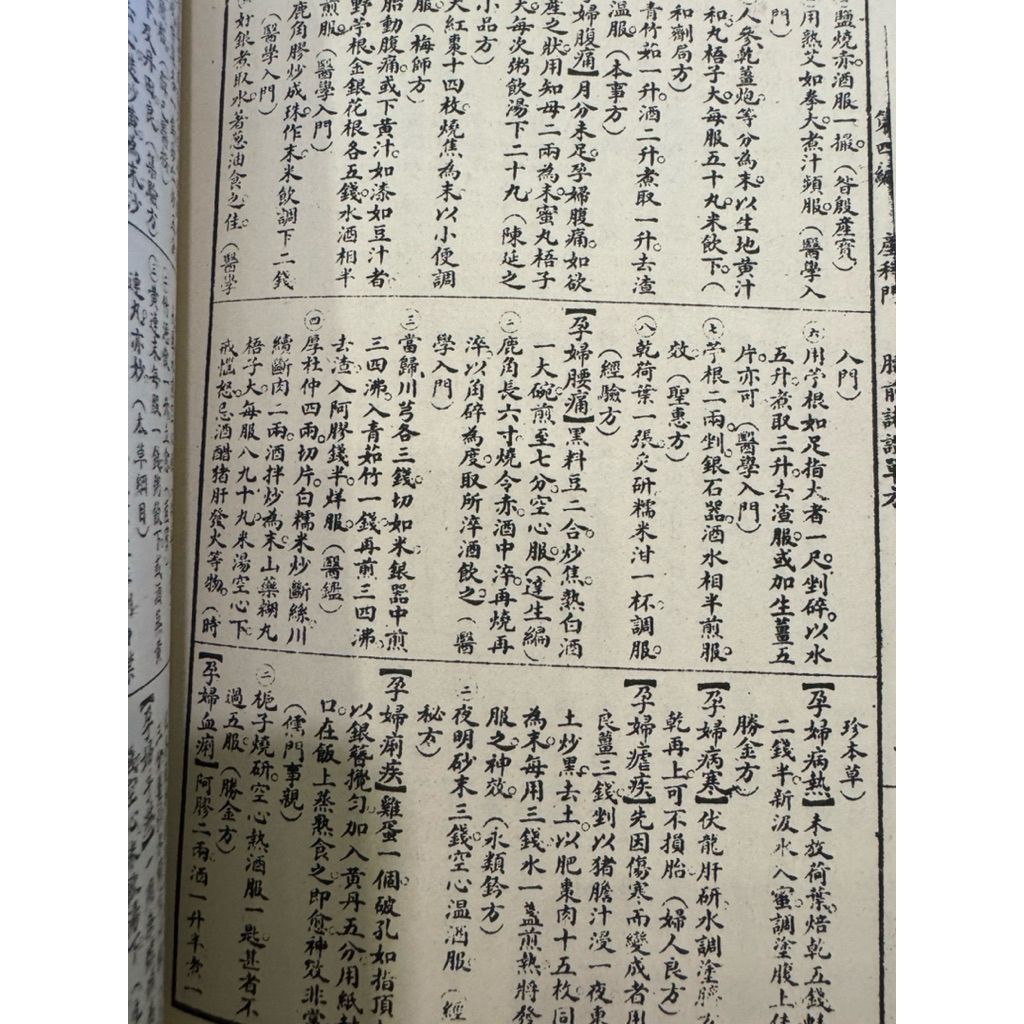 第四編 產科門 胎前諸證單方
鹽燒赤酒服一撮。(昝殷產寶)
用熟艾如拳大煮汁頻服。(醫學入
門)
人參乾薑炮等分為末以生地黃汁
和丸梧子大。每服五十丸米飲下。(
和劑局方)
青竹茹一升酒二升煮取一升。去渣
溫服(本事方)
婦腹痛】月分未足孕婦腹痛。如欲
產之狀用知母二兩為末蜜丸梧子
大每次粥飲湯下二十丸(陳延之
小品方)
大紅棗十四枚燒焦為末以小便調
服(梅師方)
胎動腹痛或下黃汁如漆如豆汁者
野苧根金銀花根各五錢水酒相半
煎服。(醫學入門)
鹿角膠炒成珠作末米飲調下二錢
(醫學入門)
好銀煮取水著葱油食之佳。(醫學
入門)
㈥用苧根如足指大者一尺。剉碎。以水
五升煮取三升去渣服。或加生薑五
片。亦可。(醫學入門)
㈦苧根二兩剉。銀石器酒水相半煎服
效。(聖惠方)
㈧乾荷葉一張炙研糯米泔一杯調服。
(經驗方)
【孕婦腰痛】黑料豆二合炒焦。熱白酒
一大碗煎至七分空心服。(達生編)
㈡鹿角長六寸燒令赤酒中淬。再燒再
淬以角碎為度取所淬酒飲之(醫
學入門)
㈢當歸川芎各三錢切如米銀器中煎
三四沸入青茹竹一錢再煎三四沸。
去渣入阿膠錢半烊服(醫鑑)
㈣厚杜仲四兩。切片。白糯米炒斷絲川
續斷肉二兩。酒拌炒為末山藥糊丸
梧子大。每服八九十丸。米湯空心下
戒惱怒忌酒醋猪肝發火等物。(時
珍本草)
【孕婦病熱】未放荷葉焙乾五錢
二錢半新汲水入蜜調塗腹上
勝金方)
【孕婦病寒】伏龍肝研水調塗
乾再上可不損胎(婦人良方)
【孕婦瘧疾】先因傷寒而變成者用
良薑三錢剉以猪膽汁浸一夜東
土炒黑去土。以肥棗肉十五枚同
為末。每用三錢水一盞煎熱將發
服之神效。(永類鈐方)
㈡夜明砂末三錢空心温酒服(經
秘方)
【孕婦痢疾】雞蛋一個。破孔如指頂
以銀簪攪勻加入黃丹五分用紙
口在飯上蒸熟食之即愈神效非常
(儒門事親)
㈡梔子燒研。空心熱酒服一匙。甚者不
過五服(勝金方)
【孕婦血痢】阿膠二兩酒一升半煮一